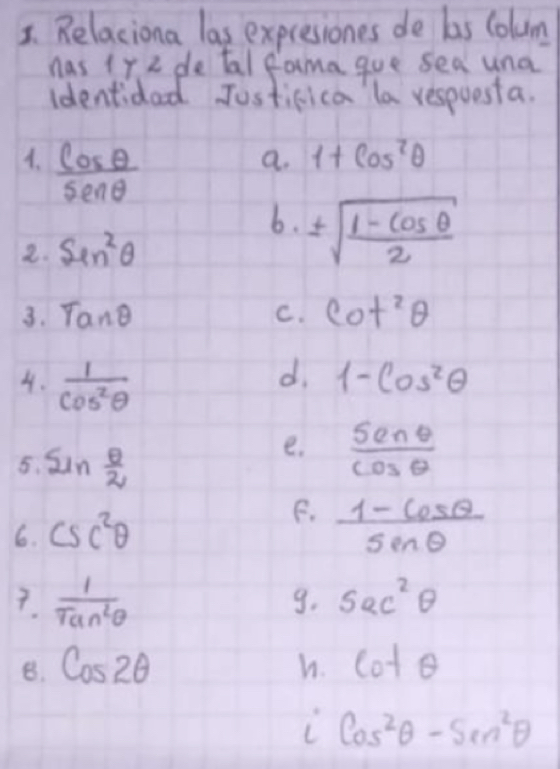 1. Relaciona las expresiones de las Colum
nas 1 y 2 de tal foma que sea una
identidad Justifica la respuesta.
1. Cosθ/senθ
a. 1 + Cos²θ
b. ± √((1 - Cos θ)/2)
2. Sen²θ
3. Tanθ
c. Cot²θ
4. 1/Cos²θ
d. 1 - Cos²θ
5. Sin θ/2
e. Senθ/cosθ
6. CSC²θ
f. (1 - Cosθ)/Senθ
7. 1/Tan²θ
g. Sec² θ
8. Cos 2θ
h. Cot θ
i Cos²θ - Sen²θ